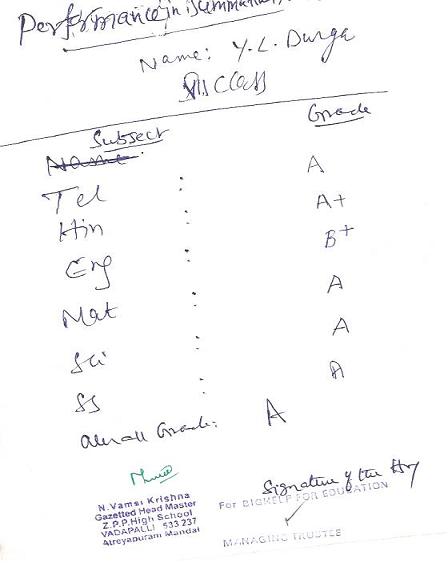 Performance in
Name: Y. L. Durga
Class
Subject Grade
Name
Tel : A
Hin : A+
Eng : B+
Mat : A
Sci : A
SS : A
Overall Grade: A
Signature of the
N. Vamsi Krishna
Gazetted Head Master
Z.P.P. High School
VADAPALLI 533 237
Atreyapuram Mandal
For BIGHELP FOR EDUCATION
MANAGING TRUSTEE